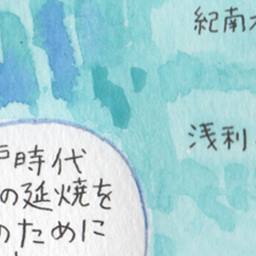 紀南
浅利
戸時代
の延焼を
のために